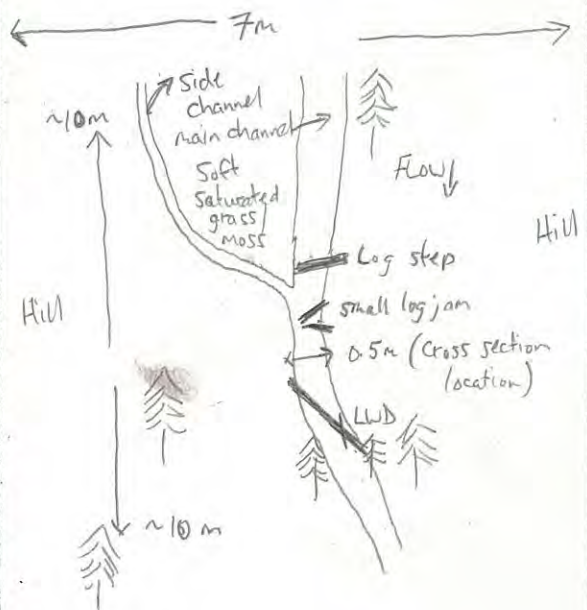 7m
Side
channel
main channel
~10m
Soft
saturated
grass
moss
Flow
Hill
Log step
Hill
small log jam
0.5m (Cross section
location)
LWD
~10m